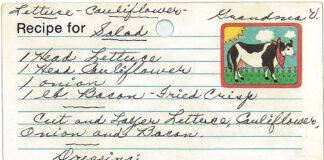 Lettuce - Cauliflower - Grandma V.
Recipe for Salad
1 Head Lettuce
1 Head Cauliflower
1 onion
1 lb Bacon - Fried Crisp
Cut and Layer Lettuce, Cauliflower,
Onion and Bacon.
Dressing: